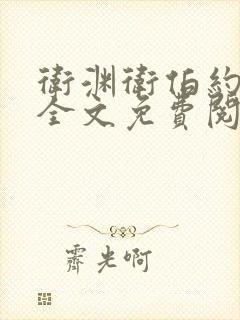 衛渊衛伯約
全文免費閱
霽光啊